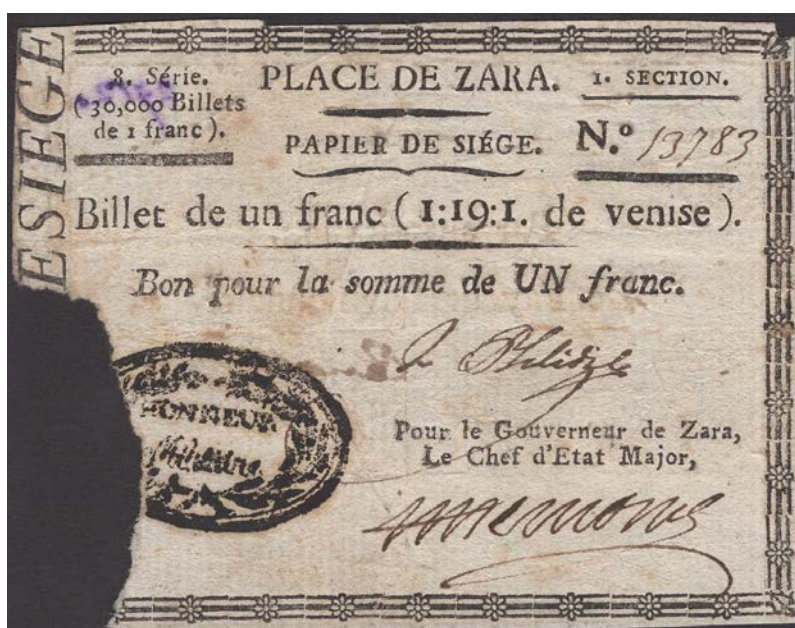 ESIEGE
8. Série.
(30,000 Billets
de 1 franc).
PLACE DE ZARA.
1. SECTION.
PAPIER DE SIÉGE.
N.º 13783
Billet de un franc (1:19:1. de venise).
Bon pour la somme de UN franc.
HONNEUR
Militaire
Pour le Gouverneur de Zara,
Le Chef d'Etat Major,